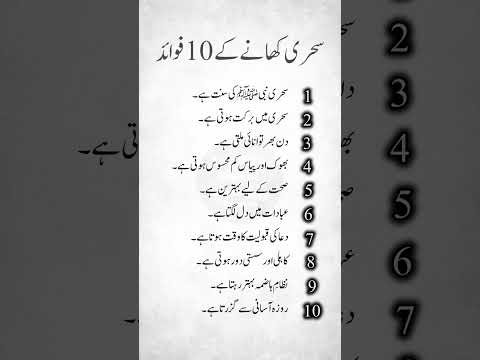 سحری کھانے کے 10 فوائد
1 سحری نبی ﷺ کی سنت ہے۔
2 سحری میں برکت ہوتی ہے۔
3 دن بھر توانائی ملتی ہے۔
4 بھوک اور پیاس کم محسوس ہوتی ہے۔
5 صحت کے لیے بہترین ہے۔
6 عبادات میں دل لگتا ہے۔
7 دعا کی قبولیت کا وقت ہوتا ہے۔
8 کاہلی اور سستی دور ہوتی ہے۔
9 نظام ہاضمہ بہتر رہتا ہے۔
10 روزہ آسانی سے گزرتا ہے۔